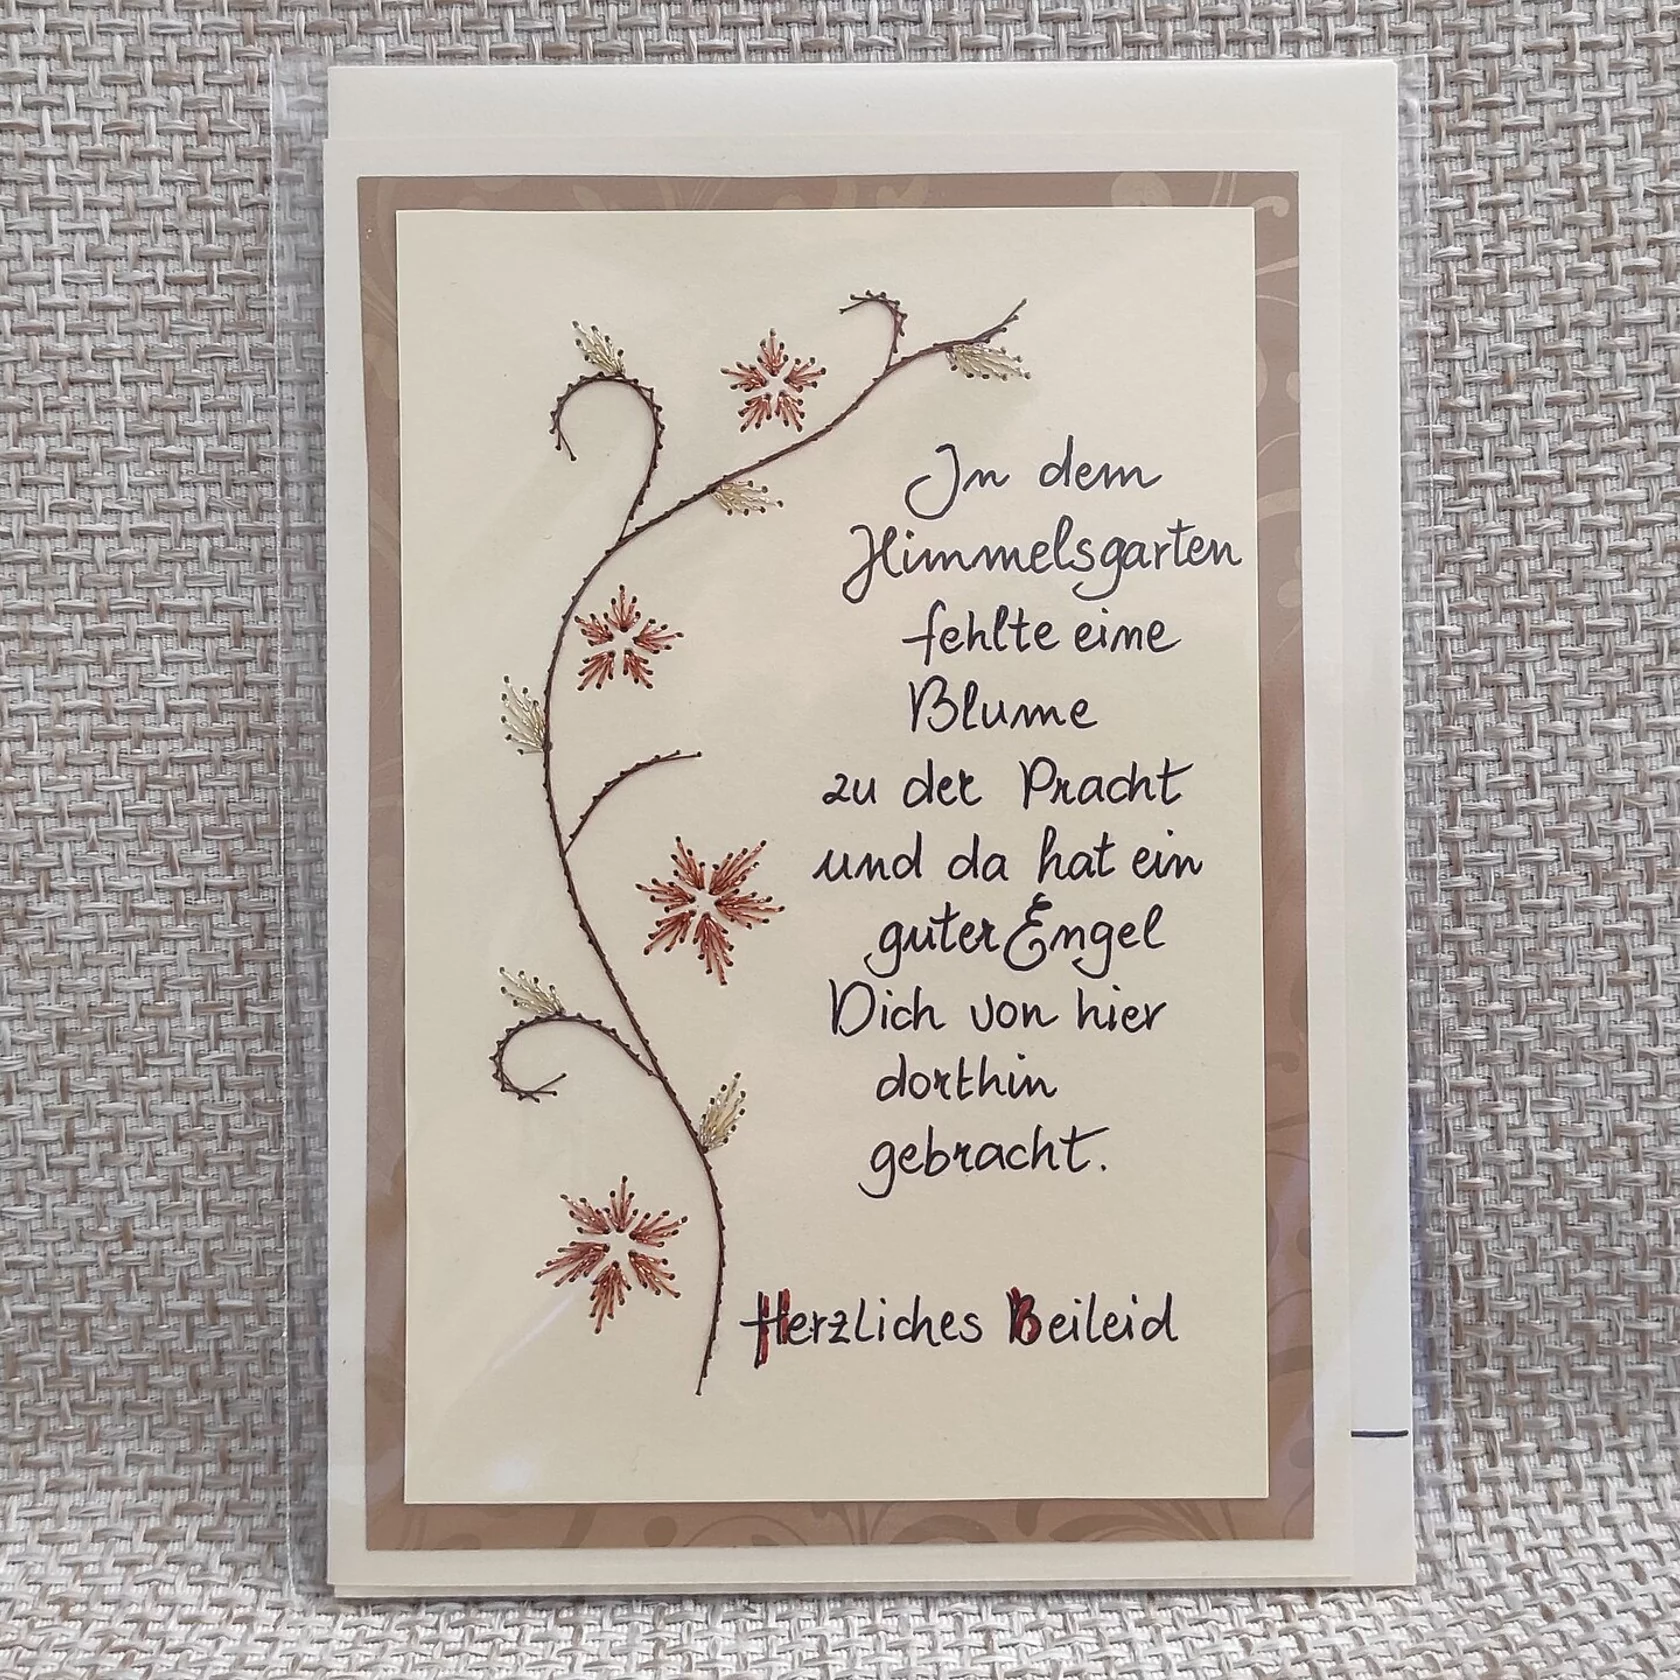 In dem
Himmelsgarten
fehlte eine
Blume
zu der Pracht
und da hat ein
guter Engel
Dich von hier
dorthin
gebracht.
Herzliches Beileid